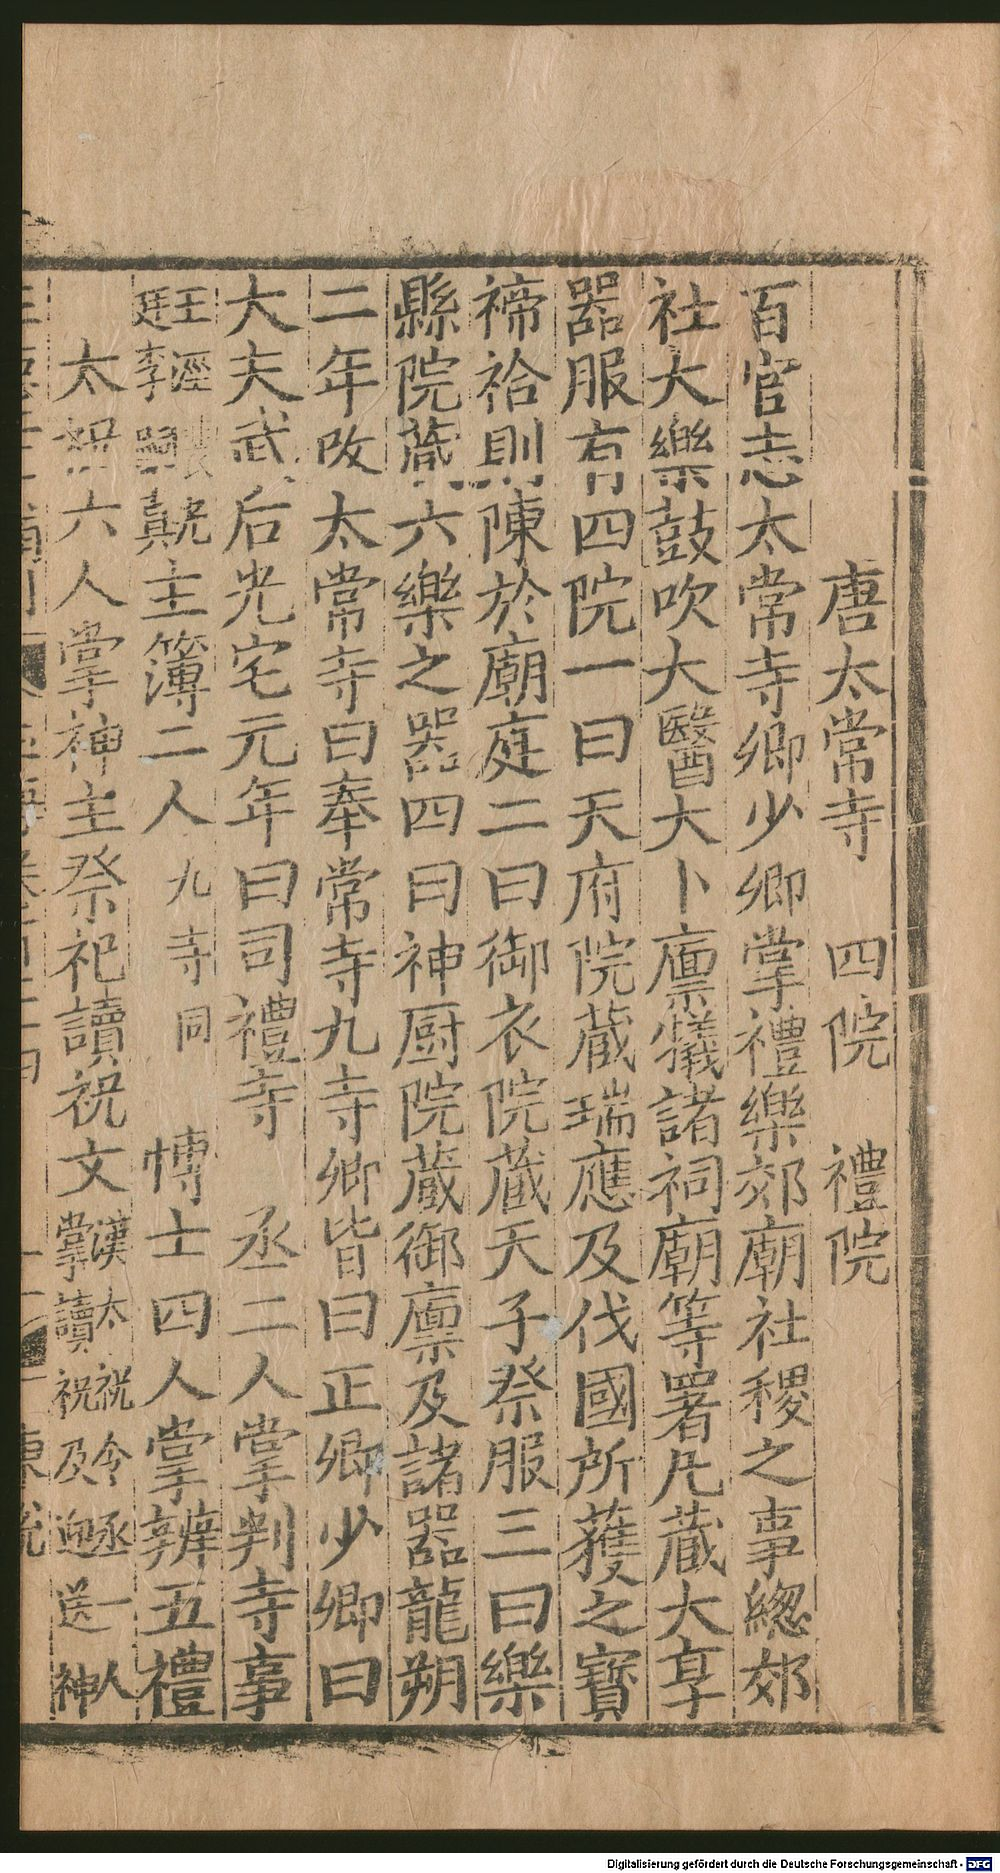 唐太常寺　四院　禮院
百官志太常寺卿少卿掌禮樂郊廟社稷之事緫郊
社大樂鼓吹大醫大卜廪犧諸祠廟等署凡藏大享
器服有四院一曰天府院藏瑞應及伐國所獲之寳
禘祫則陳於廟庭二曰御衣院藏天子祭服三曰樂
縣院藏六樂之器四曰神厨院藏御廪及諸器龍朔
二年改太常寺曰奉常寺九寺卿皆曰正卿少卿曰
大夫武后光宅元年曰司禮寺　丞二人掌判寺事
王涇裴光
廷李嗣真主簿二人九寺同　愽士四人掌辨五禮
太祝六人掌神主祭祀讀祝文漢太祝令丞一人
掌讀祝及迎送神
Digitalisierung gefördert durch die Deutsche Forschungsgemeinschaft - DFG